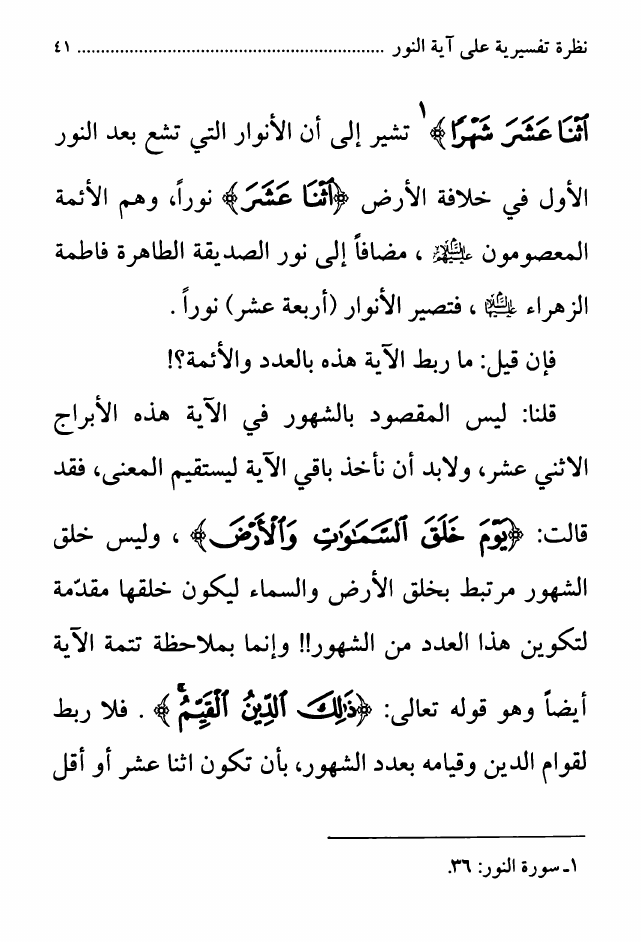 نظرة تفسيرية على آية النور ................................................................ ٤١
ٱثْنَا عَشَرَ شَهْرًا﴾١ تشير إلى أن الأنوار التي تشع بعد النور
الأول في خلافة الأرض ﴿ٱثْنَا عَشَرَ﴾ نوراً، وهم الأئمة
المعصومون عليهم السلام ، مضافاً إلى نور الصديقة الطاهرة فاطمة
الزهراء عليها السلام ، فتصير الأنوار (أربعة عشر) نوراً .
فإن قيل: ما ربط الآية هذه بالعدد والأئمة؟!
قلنا: ليس المقصود بالشهور في الآية هذه الأبراج
الاثني عشر، ولابد أن نأخذ باقي الآية ليستقيم المعنى، فقد
قالت: ﴿يَوْمَ خَلَقَ ٱلسَّمَـٰوَٰتِ وَٱلْأَرْضَ﴾ ، وليس خلق
الشهور مرتبط بخلق الأرض والسماء ليكون خلقها مقدّمة
لتكوين هذا العدد من الشهور!! وإنما بملاحظة تتمة الآية
أيضاً وهو قوله تعالى: ﴿ذَٰلِكَ ٱلدِّينُ ٱلْقَيِّمُ ۚ﴾ . فلا ربط
لقوام الدين وقيامه بعدد الشهور، بأن تكون اثنا عشر أو أقل
١ـ سورة النور: ٣٦.